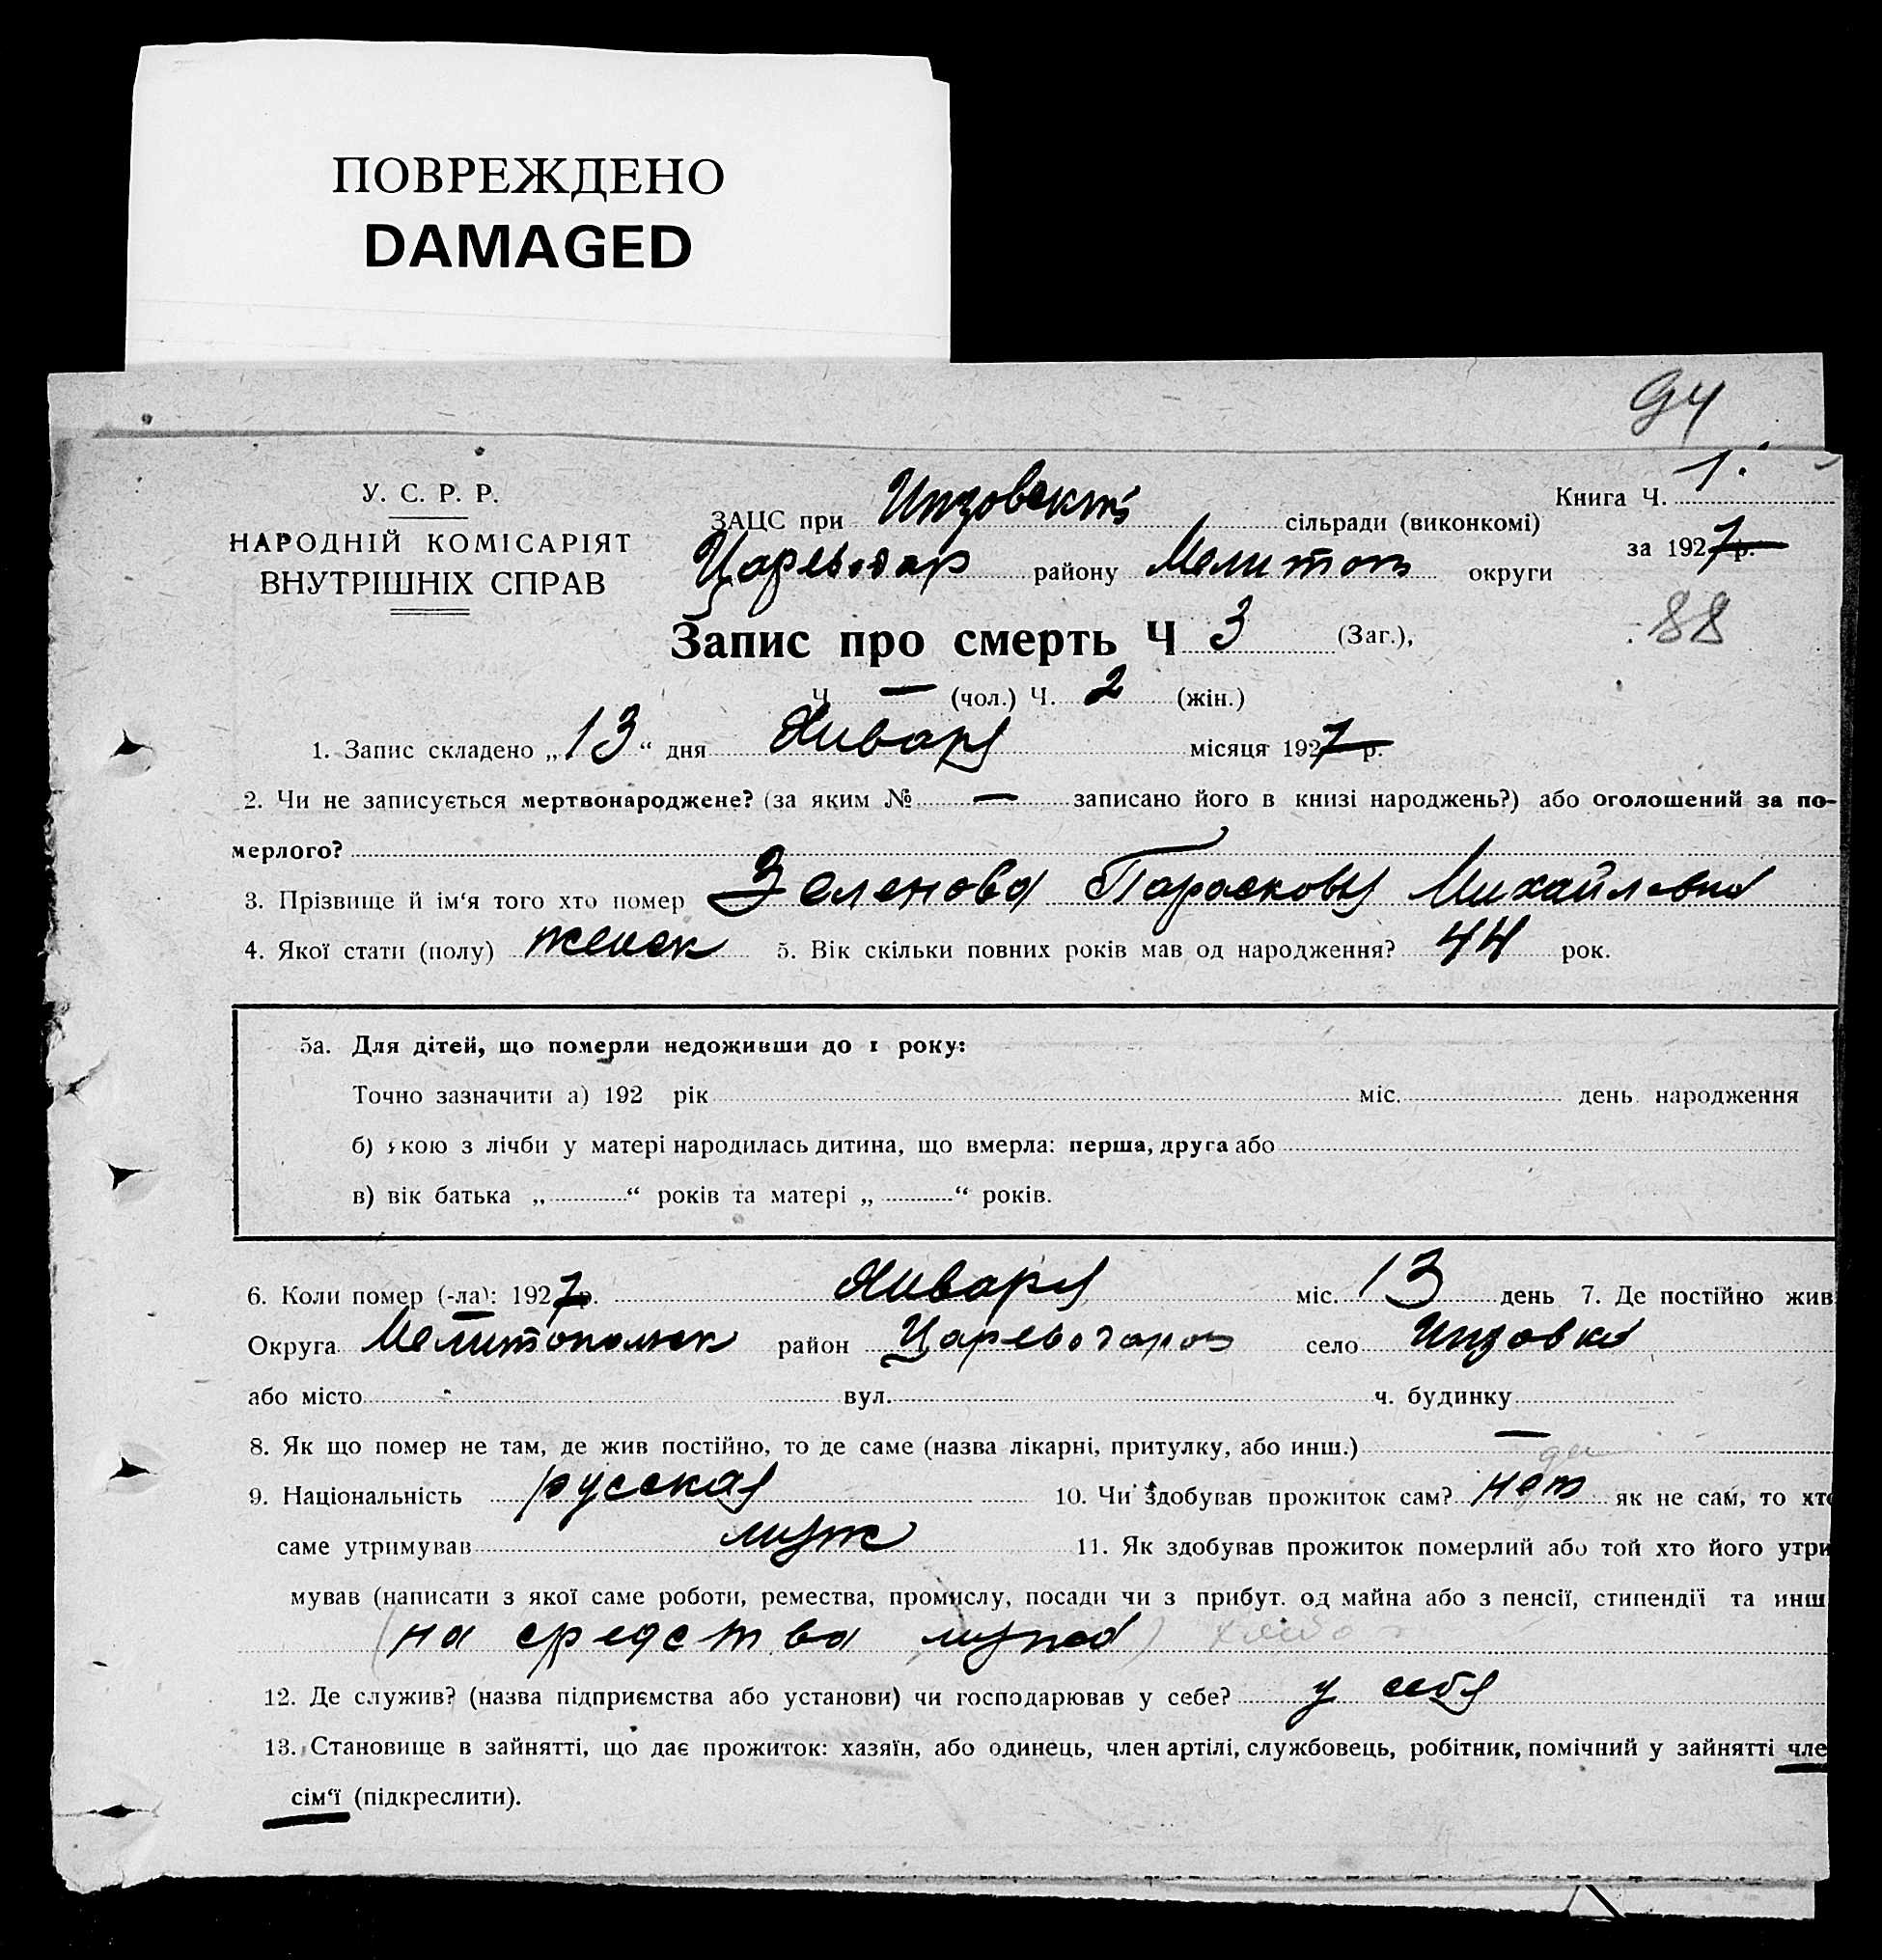 ПОВРЕЖДЕНО
DAMAGED
94
У. С. Р. Р.
НАРОДНІЙ КОМІСАРІЯТ
ВНУТРІШНІХ СПРАВ
Книга Ч. 1.
ЗАЦС при сільради (виконкомі)
за 1927 р.
Цареводар району Мелитоп округи
88
Запис про смерть Ч 3 (Заг.),
Ч — (чол.) Ч. 2 (жін.)
1. Запис складено „13“ дня Января місяця 1927 р.
2. Чи не записується мертвонароджене? (за яким № — записано його в книзі народжень?) або оголошений за по-
мерлого?
3. Прізвище й ім‘я того хто помер Зеленова Парасковья Михайловна
4. Якої стати (полу) женск 5. Вік скільки повних років мав од народження? 44 рок.
5а. Для дітей, що померли недоживши до 1 року:
Точно зазначити а) 192 рік міс. день народження
б) якою з лічби у матері народилась дитина, що вмерла: перша, друга або
в) вік батька „ “ років та матері „ “ років.
6. Коли помер (-ла): 1927 р. Января міс. 13 день 7. Де постійно жив
Округа Мелитопольск район Цареводаров село
або місто - вул. ч. будинку
8. Як що помер не там, де жив постійно, то де саме (назва лікарні, притулку, або инш.) —
да
9. Національність русская 10. Чи здобував прожиток сам? нет як не сам, то хто
саме утримував муж 11. Як здобував прожиток померлий або той хто його утри
мував (написати з якої саме роботи, ремества, промислу, посади чи з прибут. од майна або з пенсії, стипендії та инш
(на средства мужа)
12. Де служив? (назва підприємства або установи) чи господарював у себе? у себя
13. Становище в зайнятті, що дає прожиток: хазяїн, або одинець, член артілі, службовець, робітник, помічний у зайнятті чле
сім‘ї (підкреслити).